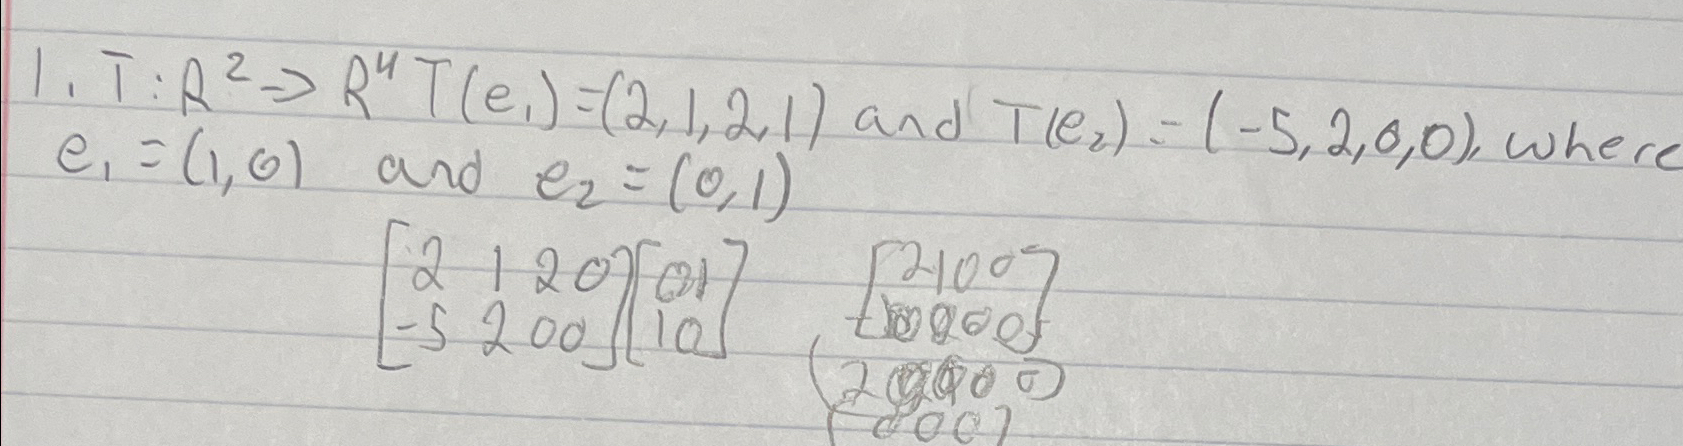 1. T: R² → R⁴ T(e₁)=(2,1,2,1) and T(e₂) = (-5,2,0,0), where
e₁ = (1,0) and e₂ = (0,1)
[2 1 2 0] [0 1] [2 1 0 0]
[-5 2 0 0] [1 0]